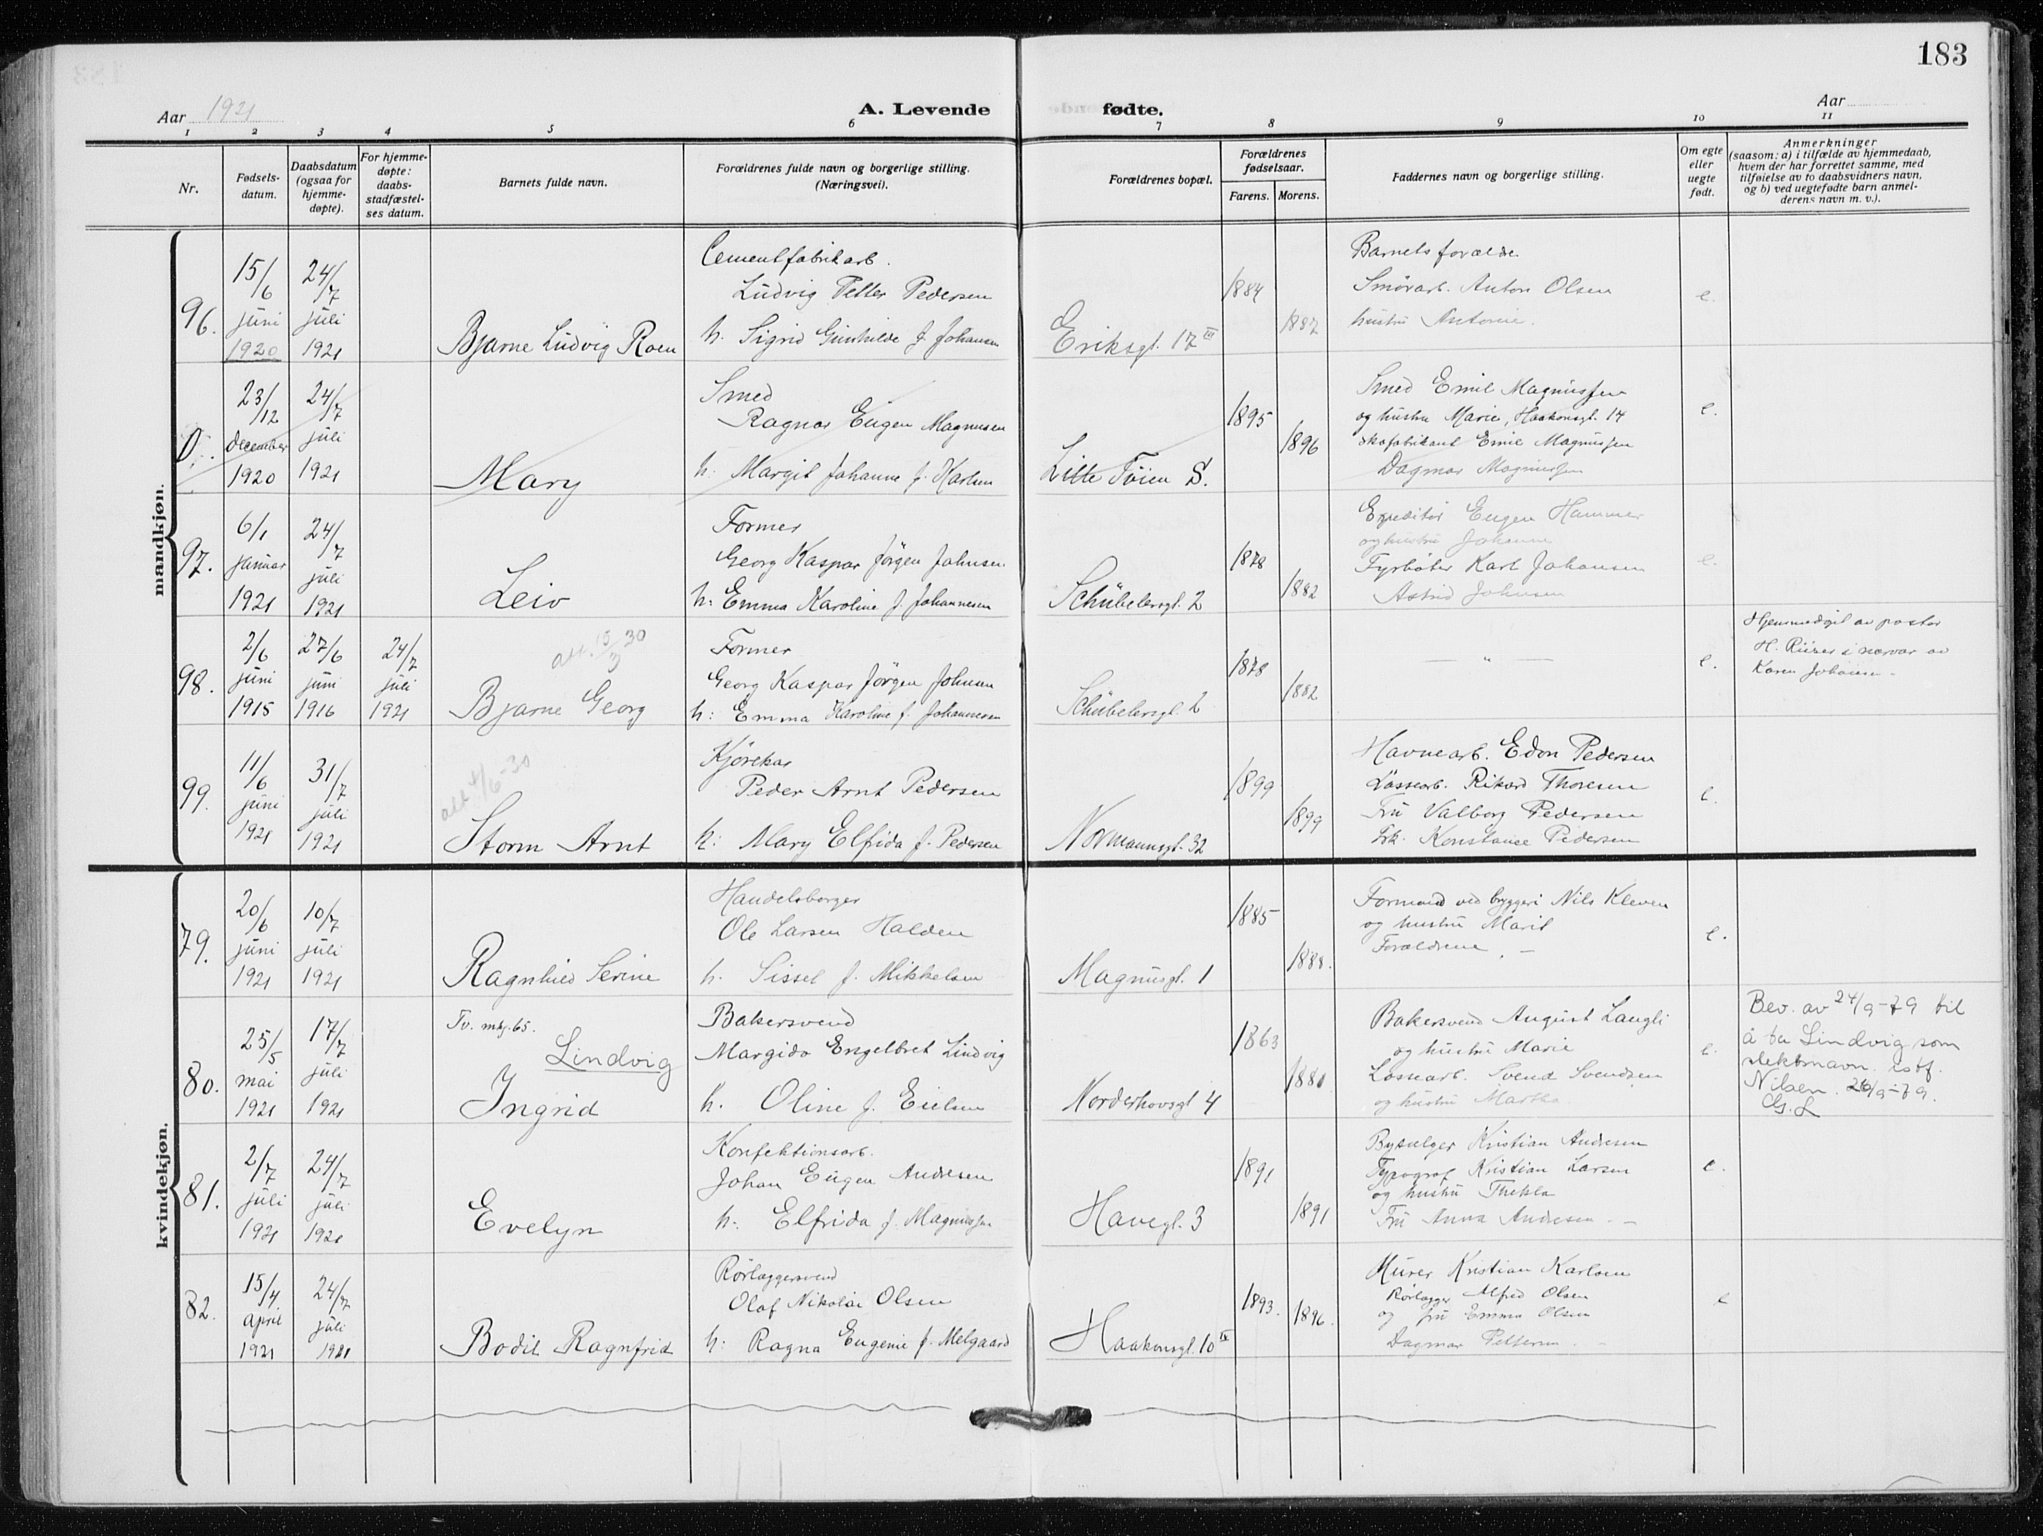 183
Aar 1921
A. Levende
fødte.
Aar
1 2 3 4 5 6 7 8 9 10 11
Nr.
Fødsels-
datum.
Daabsdatum
(ogsaa for
hjemme-
døpte).
For hjemme-
døpte:
daabs-
stadfæstel-
ses datum.
Barnets fulde navn.
Forældrenes fulde navn og borgerlige stilling.
(Næringsvei).
Forældrenes bopæl.
Forældrenes
fødselsaar.
Farens. Morens.
Faddernes navn og borgerlige stilling.
Om egte
eller
uegte
født.
Anmerkninger
(saasom: a) i tilfælde av hjemmedaab,
hvem der har forrettet samme, med
tilføielse av to daabsvidners navn,
og b) ved uegtefødte barn anmel-
derens navn m. v.).
mandkjøn.
96.
15/6
juni
1920
24/7
juli
1921
Bjarne Ludvig Roen
Cementfabrikarb.
Ludvig Petter Pedersen
h. Sigrid Gunhilde f. Johansen
Eriksgt. 17 III
1884
1887
Barnets forælde
Smørarb. Anton Olsen
hustru Antonie.
e.
23/12
december
1920
24/7
juli
1921
Mary
Smed
Ragnar Eugen Magnusen
h. Margit Johanne f. Karlsen
Lille Tøien S.
1895
1896
Smed Emil Magnussen
og hustru Marie, Haakonsgt. 14
skofabrikant Emil Magnussen
Dagmar Magnussen
e.
97.
6/1
januar
1921
24/7
juli
1921
Leiv
Former
Georg Kaspar Jørgen Johnsen
h: Emma Karoline f. Johannesen
Schübelersgt. 2
1878
1882
Expeditør Eugen Hammer
og hustru Johanne
Fyrbøter Karl Johansen
Astrid Johnsen
e.
98.
2/6
juni
1915
27/6
juni
1916
24/7
juli
1921
att. 15/3 30
Bjarne Georg
Former
Georg Kaspar Jørgen Johnsen
h: Emma Karoline f. Johannesen
Schübelersgt. 2
1878
1882
— " —
e.
Hjemmedøpt av pastor
H. Riiser i nærvær av
Karen Johansen -
99.
11/6
juni
1921
31/7
juli
1921
att 4/6-30
Storm Arnt
Kjørekar
Peder Arnt Pedersen
h: Mary Elfrida f. Pedersen
Normannsgt. 32
1899
1899
Havnearb. Edon Pedersen
Løssearb. Rikard Thoresen
Fru Valborg Pedersen
Frk. Konstanse Pedersen
e.
kvindekjøn.
79.
20/6
juni
1921
10/7
juli
1921
Ragnhild Serine
Handelsborger
Ole Larsen Halden
h. Sissel f. Mikkelsen
Magnusgt. 1
1885
1888.
Formand ved bryggeri Nils Kleven
og hustru Marit
Forældrene. —
e.
80.
25/5
mai
1921
17/7
juli
1921
Tv. mkj. 65.
Lindvig
Ingrid
Bakersvend
Margido Engelbret Lindvig
h. Oline f. Eielsen
Norderhovsgt 4
1863
1880
Bakersvend August Langli
og hustru Marie
Løssearb. Svend Svendsen
og hustru Martha
e.
Bev. av 24/9-79 til
å ta Lindvig som
slektsnavn istf.
Nilsen. 26/9-79.
G. L
81.
2/7
juli
1921
24/7
juli
1921
Evelyn
Konfektionsarb.
Johan Eugen Andresen
h. Elfrida f. Magnussen
Havegt. 3
1891
1891
Bysælger Kristian Andresen
Typograf Kristian Larsen
og hustru Thekla
Fru Anna Andresen. —
e.
82.
15/4
april
1921
24/7
juli
1921
Bodil Ragnfrid
Rørlæggersvend
Olaf Nikolai Olsen
h: Ragna Eugenie f. Melgaard
Haakonsgt. 10 IV
1893.
1896.
Murer Kristian Karlsen
Rørlægger Alfred Olsen
og fru Emma Olsen
Dagmar Pettersen. —
e